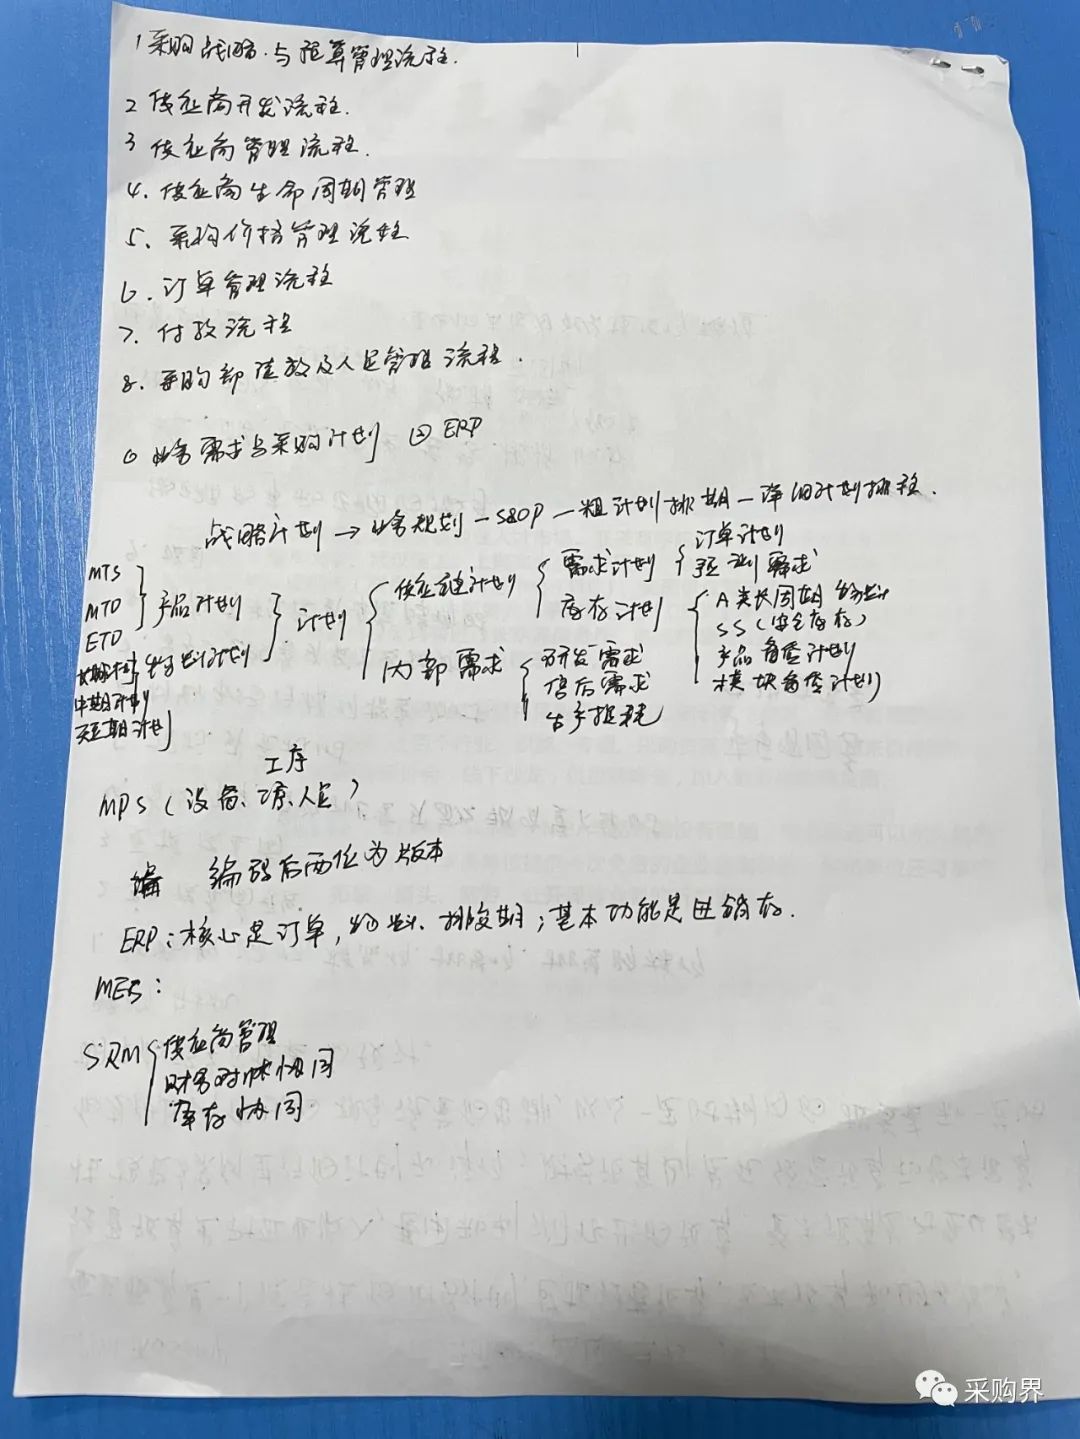 1 采购战略与预算管理流程.
2 供应商开发流程.
3 供应商管理流程.
4. 供应商生命周期管理
5. 采购价格管理流程
6. 订单管理流程
7. 付款流程
8. 采购部绩效及人员管理流程.
业务需求与采购计划 ERP
战略计划→业务规划—S&OP—粗计划排期—详细计划排程.
MTS
MTO
ETO
产品计划
长期计划
中期计划
短期计划
物料计划
计划
供应链计划
需求计划
订单计划
预测需求
库存计划
A类长周期物料
SS(安全库存)
产品齐套计划
模块齐套计划
内部需求
研发需求
售后需求
生产损耗
工序
MPS(设备、人员)
编码后两位为版本
ERP:核心是订单,物料、排交期;基本功能是进销存.
MES:
SRM
供应商管理
财务对帐协同
库存协同
采购界